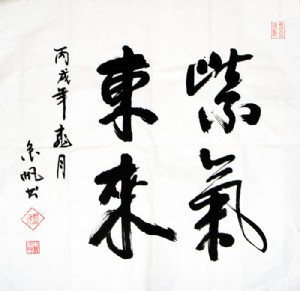 紫氣
東來
丙戌年 月
帆书